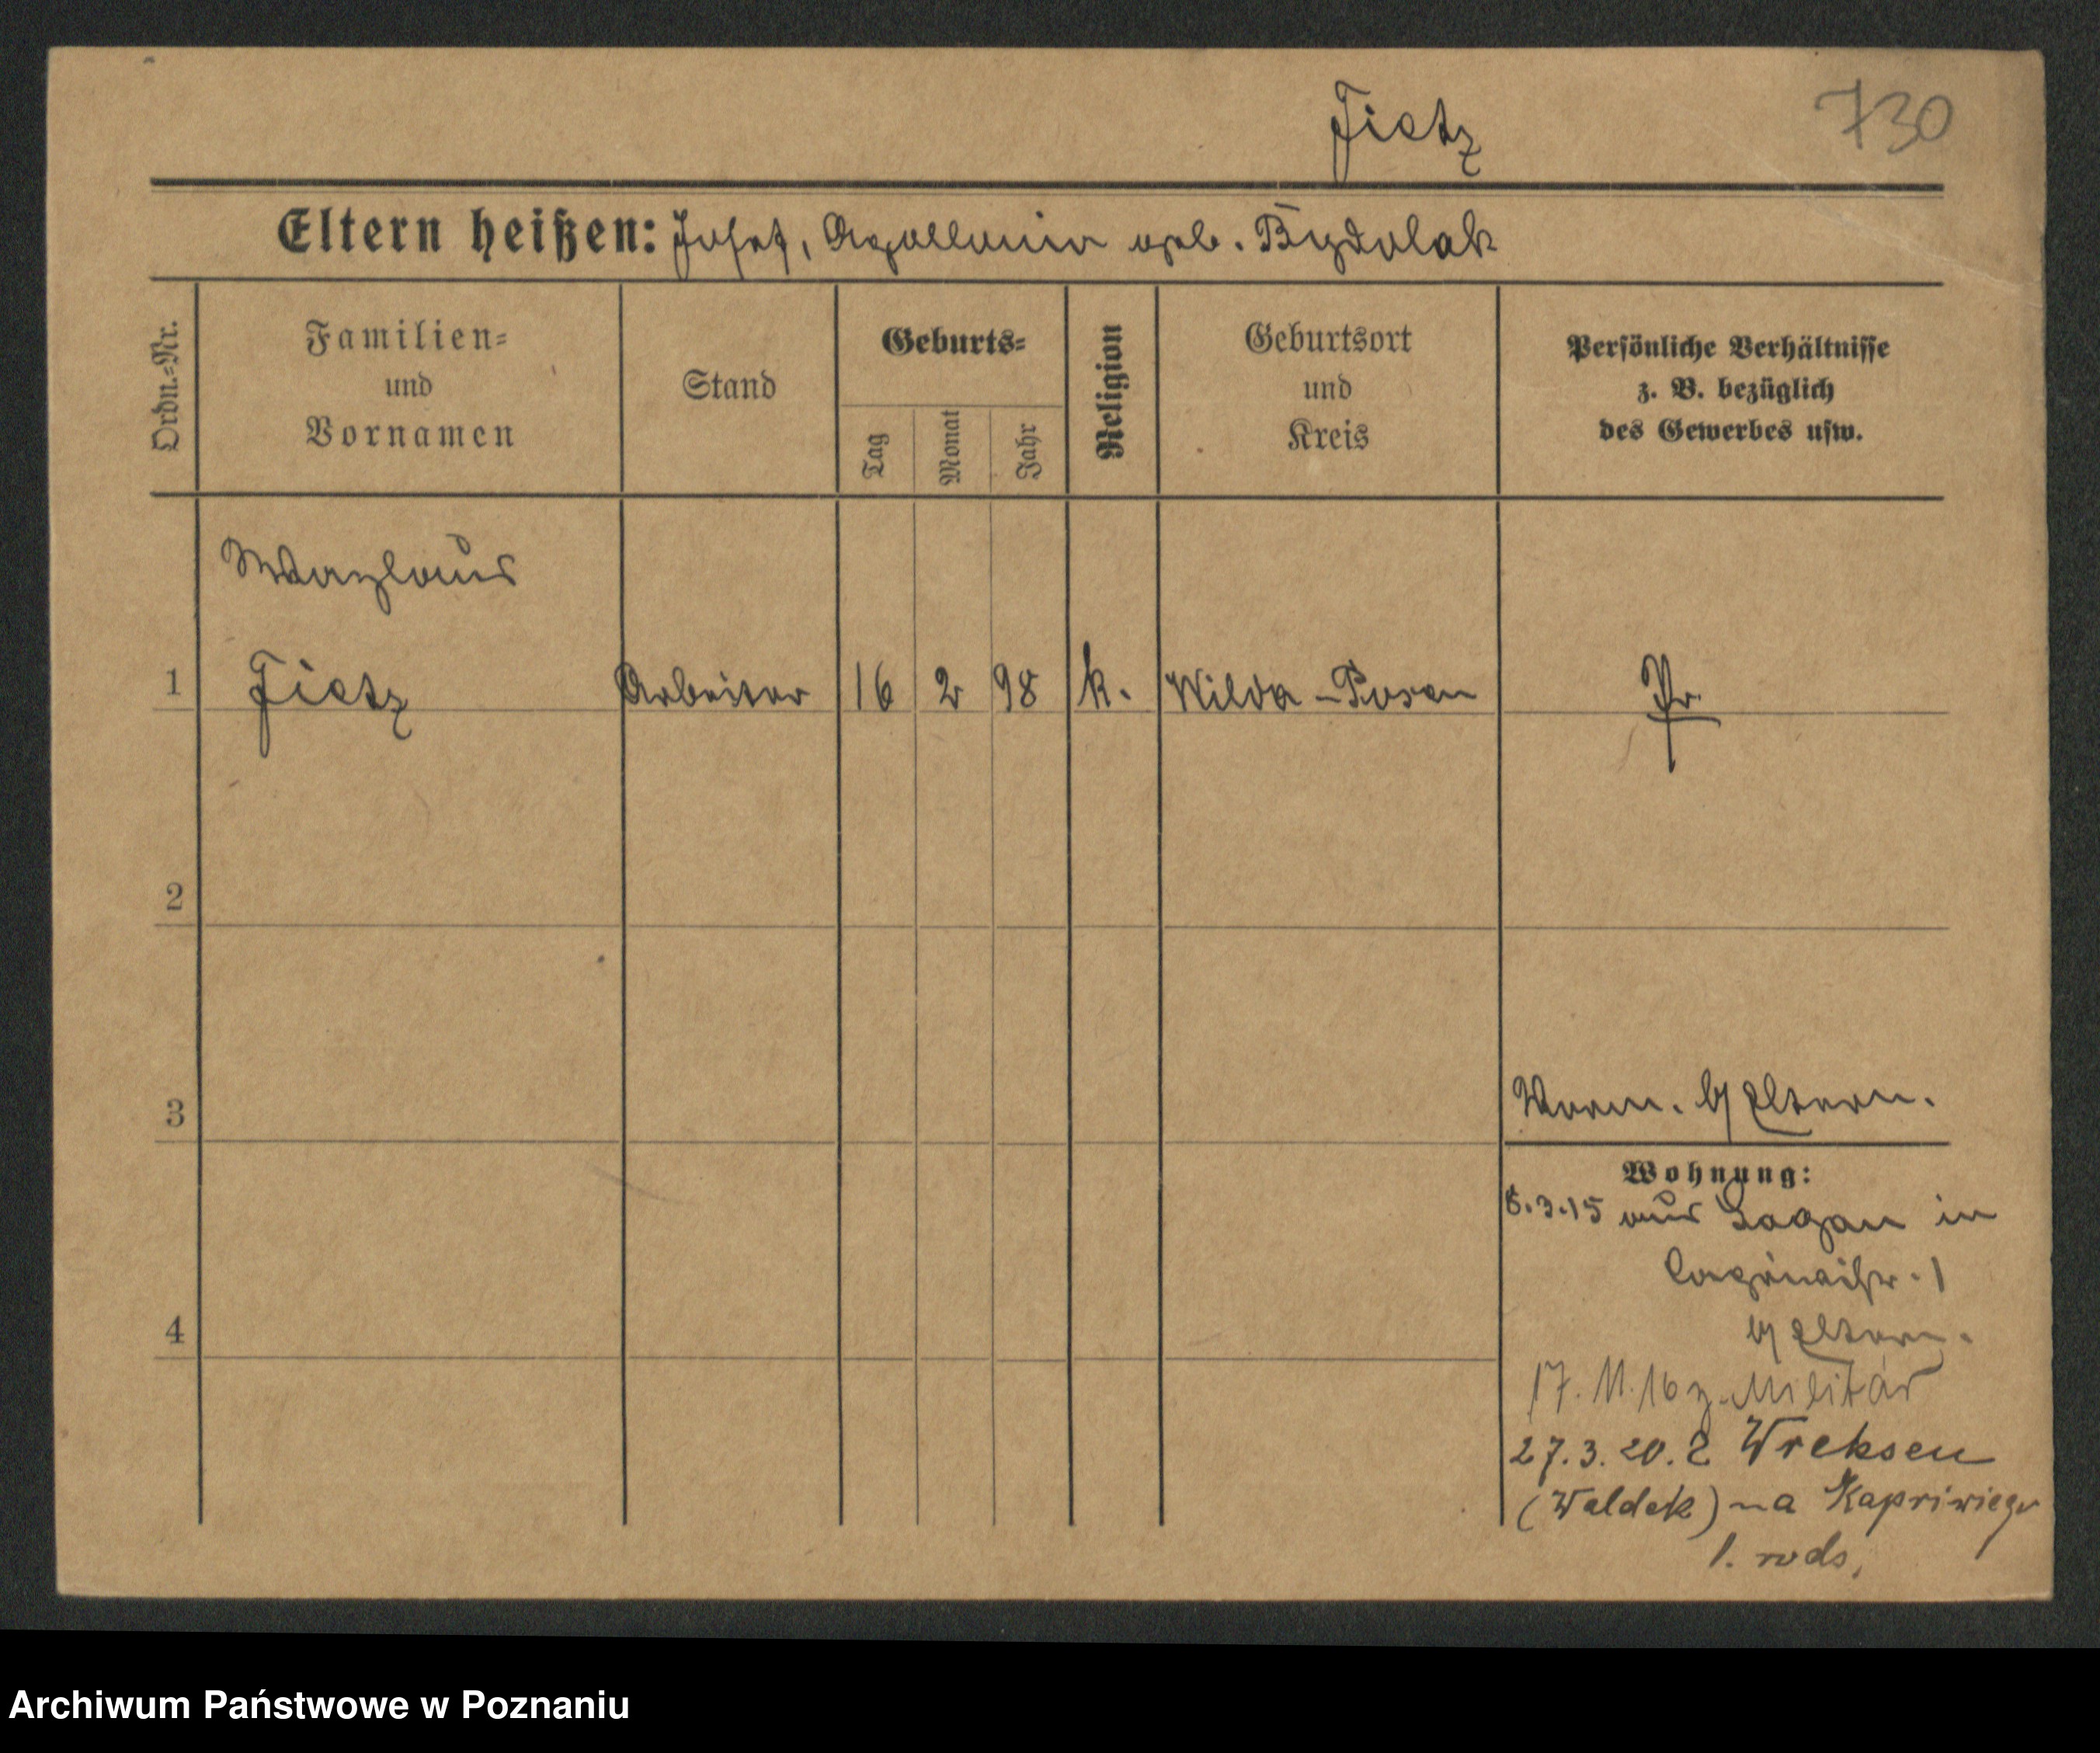 Fietz
730
Eltern heißen: Josef, Apollonia geb. Bydolak
Ordn.=Nr.
Familien=
und
Vornamen
Stand
Geburts=
Tag
Monat
Jahr
Religion
Geburtsort
und
Kreis
Persönliche Verhältnisse
z. B. bezüglich
des Gewerbes usw.
Wazlaus
1 Fietz Arbeiter 16 2 98 k. Wilda-Posen Pr
2
3
Vorm. b/ Eltern.
Wohnung:
8.3.15 aus Sagan in
Caprivistr. 1
4
b/ Eltern.
17. 11. 16 z. Militär
27. 3. 20. Z Wreksen
(Waldek) na Kapriwiego
1. rods.
Archiwum Państwowe w Poznaniu